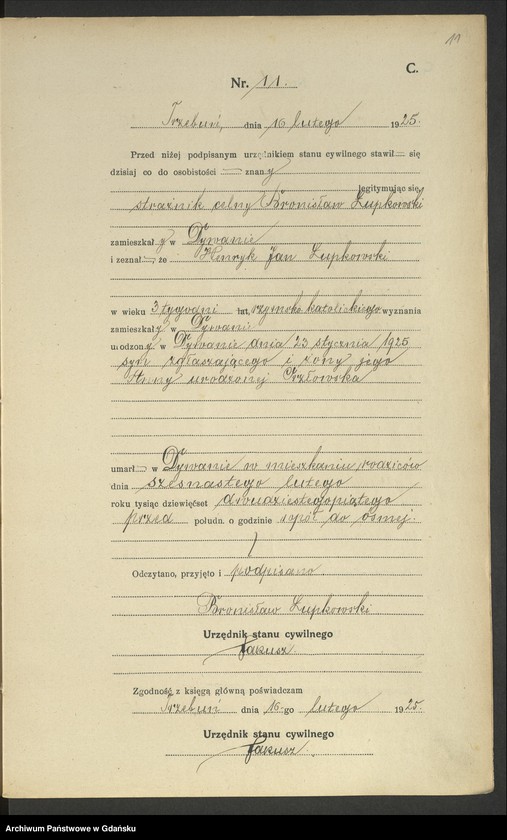 11
C.
Nr. 11.
Trzebuń, dnia 16 lutego 1925.
Przed niżej podpisanym urzędnikiem stanu cywilnego stawił się
dzisiaj co do osobistości znany
legitymując się,
strażnik celny Bronisław Łupkowski
zamieszkały w Dywanie
i zeznał, że Henryk Jan Łupkowski
w wieku 3 tygodni lat, rzymsko katolickiego wyznania
zamieszkały w Dywanie
urodzony w Dywanie dnia 23 stycznia 1925
syn zgłaszającego i żony jego
Anny urodzonej
umarł w Dywanie w mieszkaniu rodziców
dnia szesnastego lutego
roku tysiąc dziewięćset dwudziestegopiątego
przed połudn. o godzinie wpół do ósmej.
Odczytano, przyjęto i podpisano.
Bronisław Łupkowski
Urzędnik stanu cywilnego
Jakusz.
Zgodność z księgą główną poświadczam
Trzebuń dnia 16-go lutego 1925.
Urzędnik stanu cywilnego
Jakusz.
Archiwum Państwowe w Gdańsku